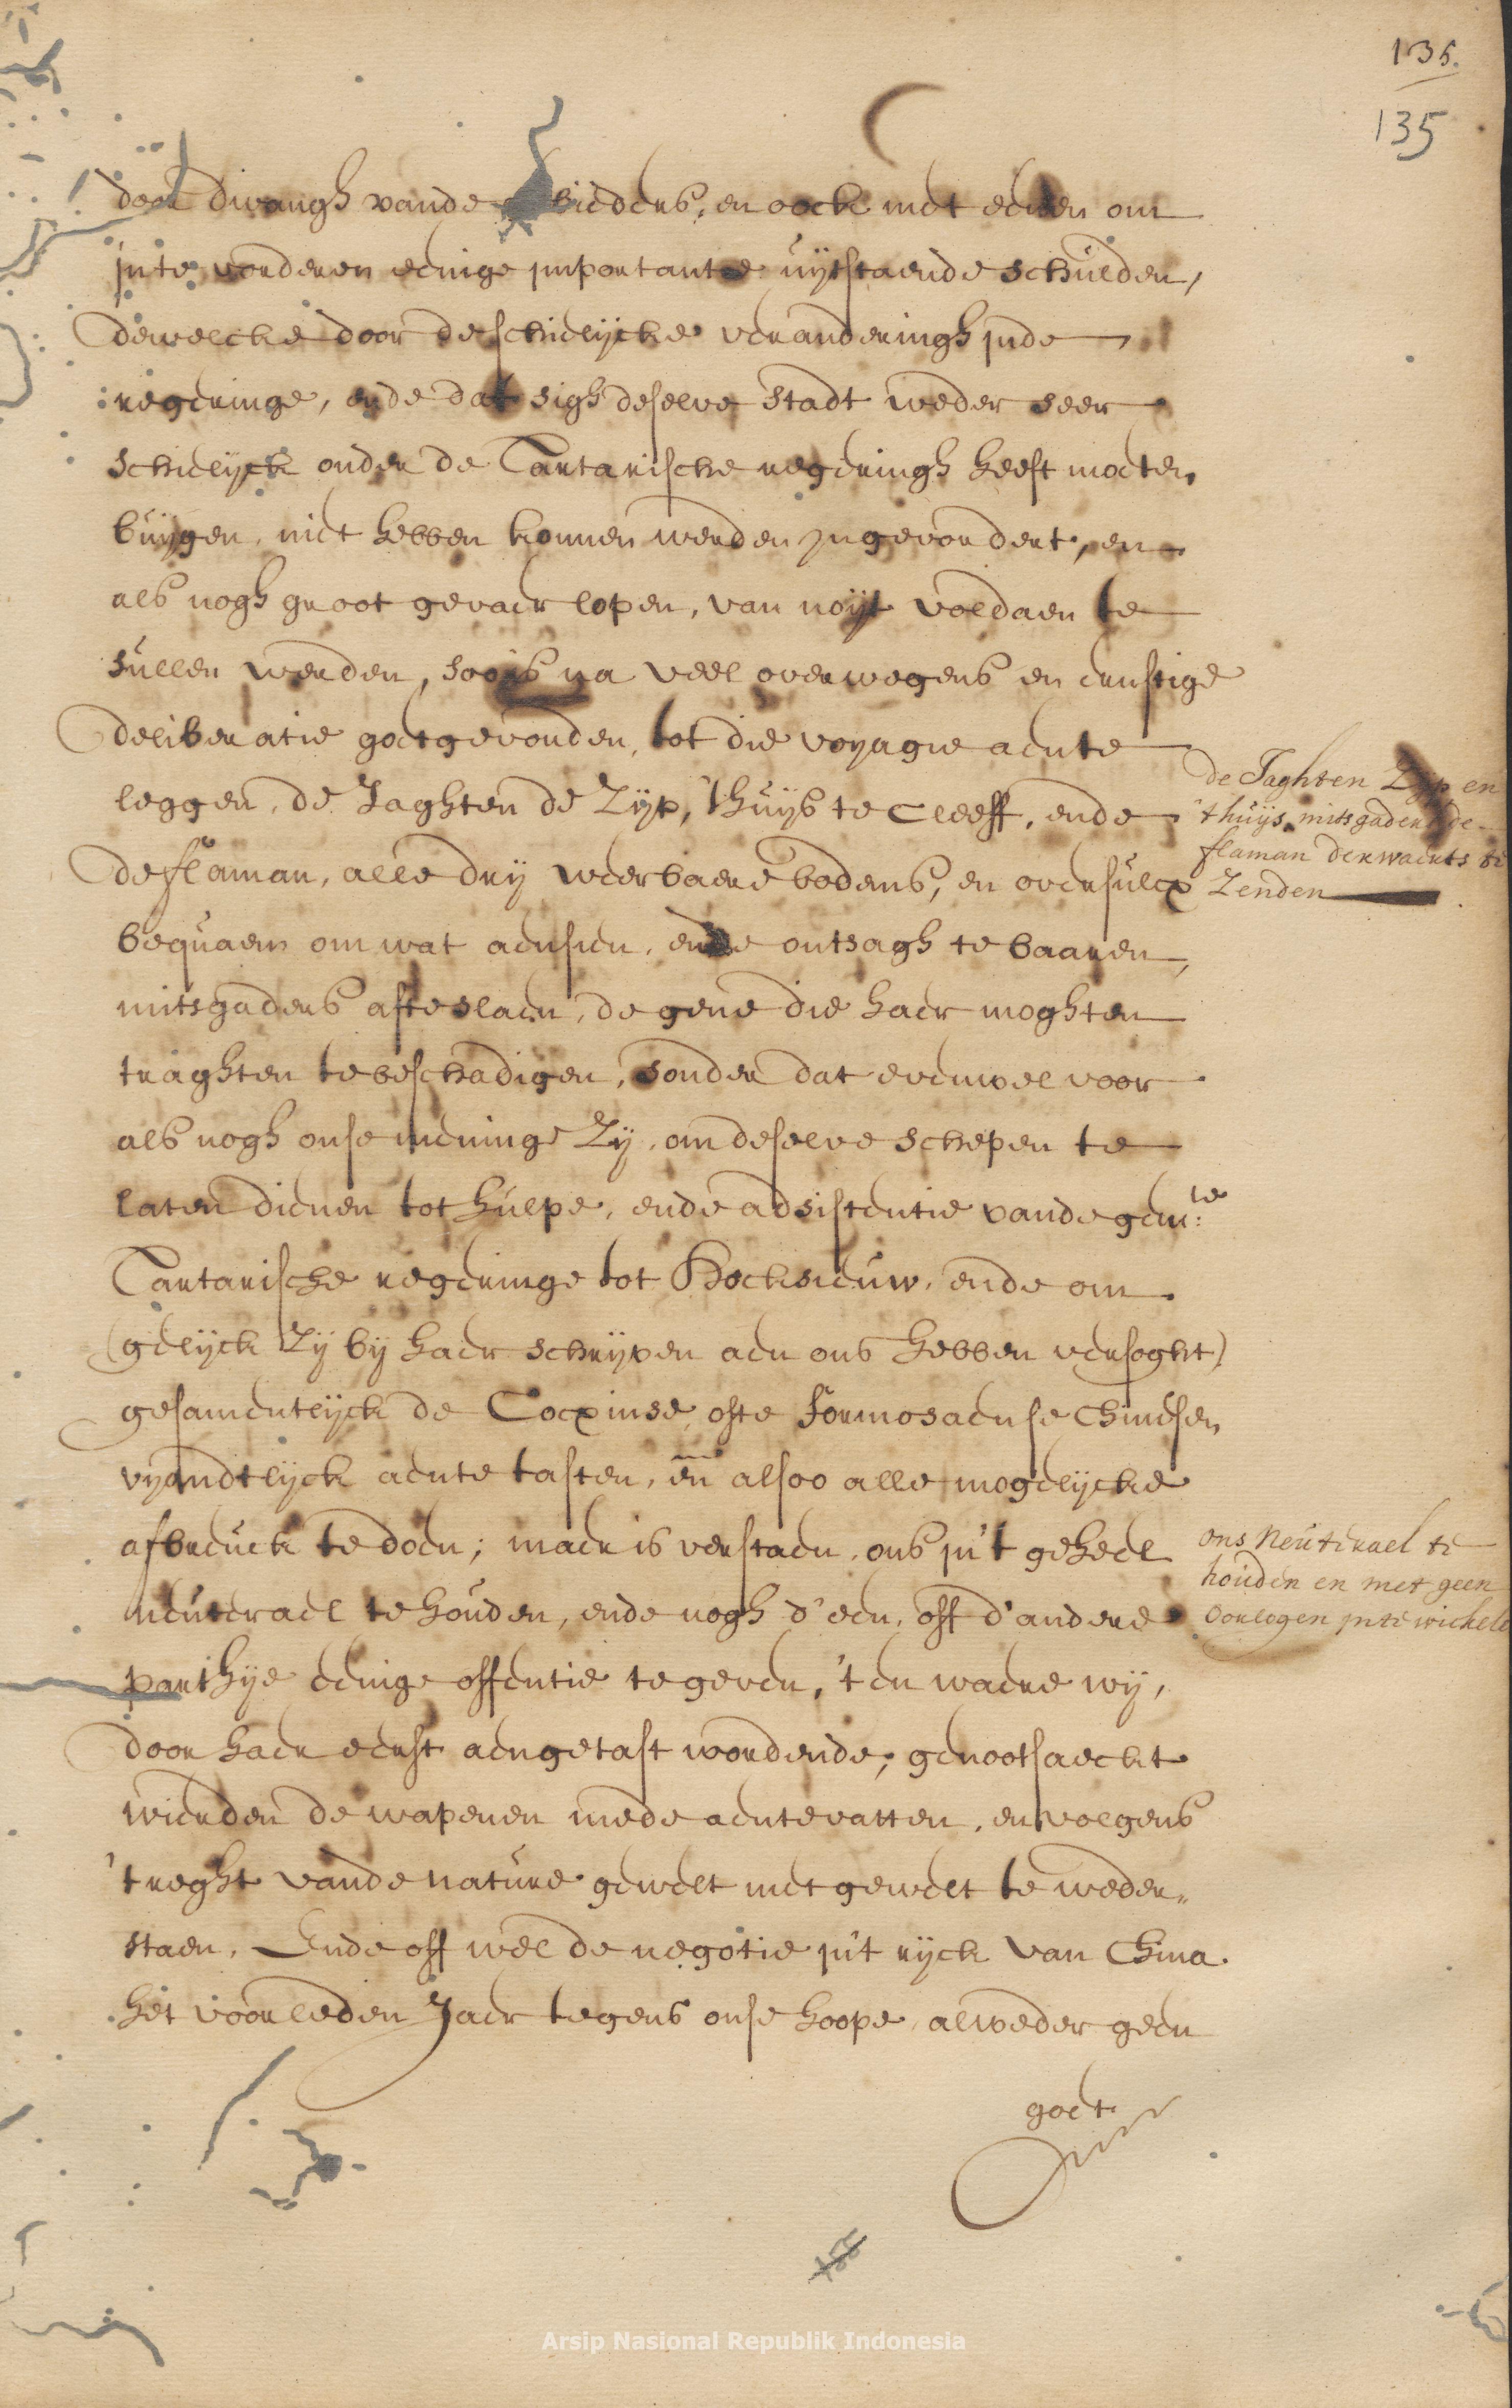 135.
135
door dwangh vande gebieders, en oock met eenen om
jnte vorderen eenige jmportante uijtstaende schulden,
dewelcke door de schielijcke veranderingh jnde
regeringe, ende dat sigh deselve stadt weder seer
schielijck onder de Tartarische regeringh heeft moeten
buijgen, niet hebben konnen werden jngevordert, en
als nogh groot gevaer lopen, van noijt voldaen te
sullen werden, soo is na veel overwegens en ernstige
deliberatie goetgevonden, tot die voyagie aente
leggen, de Jaghten de Zijp, 't huijs te Cleeff, ende
de flaman, alle drij weerbaere bodems, en oversulcx
bequaem om wat aensien, ende ontsagh te baaren,
mitsgaders afteslaen, de gene die haer moghten
traghten te beschadigen, sonder dat evenwel voor
als nogh onse meninge Zij, om deselve schepen te
laten dienen tot hulpe, ende adsistentie vande gem:te
Tartarische regeringe tot Hocksieuw, ende om
(gelijck Zij bij haer schrijven aen ons hebben versoght)
gesamentlijck de Cocxinse ofte formosaense Chinesen
vyandtlijck aente tasten, en alsoo alle mogelijcke
afbreuck te doen; maer is verstaen, ons jn't geheel
neuteracl te houden, ende nogh d'een, off d'andere
parthije eenige offentie te geven, 't en waere wij,
door haer eerst aengetast wordende, genootsaeckt
wierden de wapenen mede aentevatten, en volgens
't reght vande nature gewelt met gewelt te weder„
staen, Ende off wel de negotie jn't rijck van China
het voorleden Jaer tegens onse hoope, alweder geen
goet
de Jaghten Zyp en
't huijs mitsgaders de
flaman derwaerts te
Zenden
ons Neuterael te
houden en met geen
Oorlogen jnte wickele
Arsip Nasional Republik Indonesia